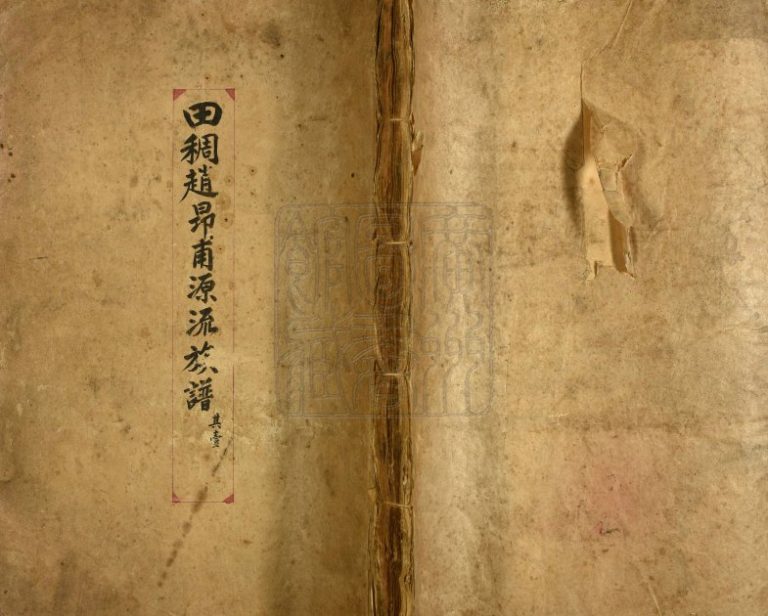 田稠趙昻甫源流族譜
其壹